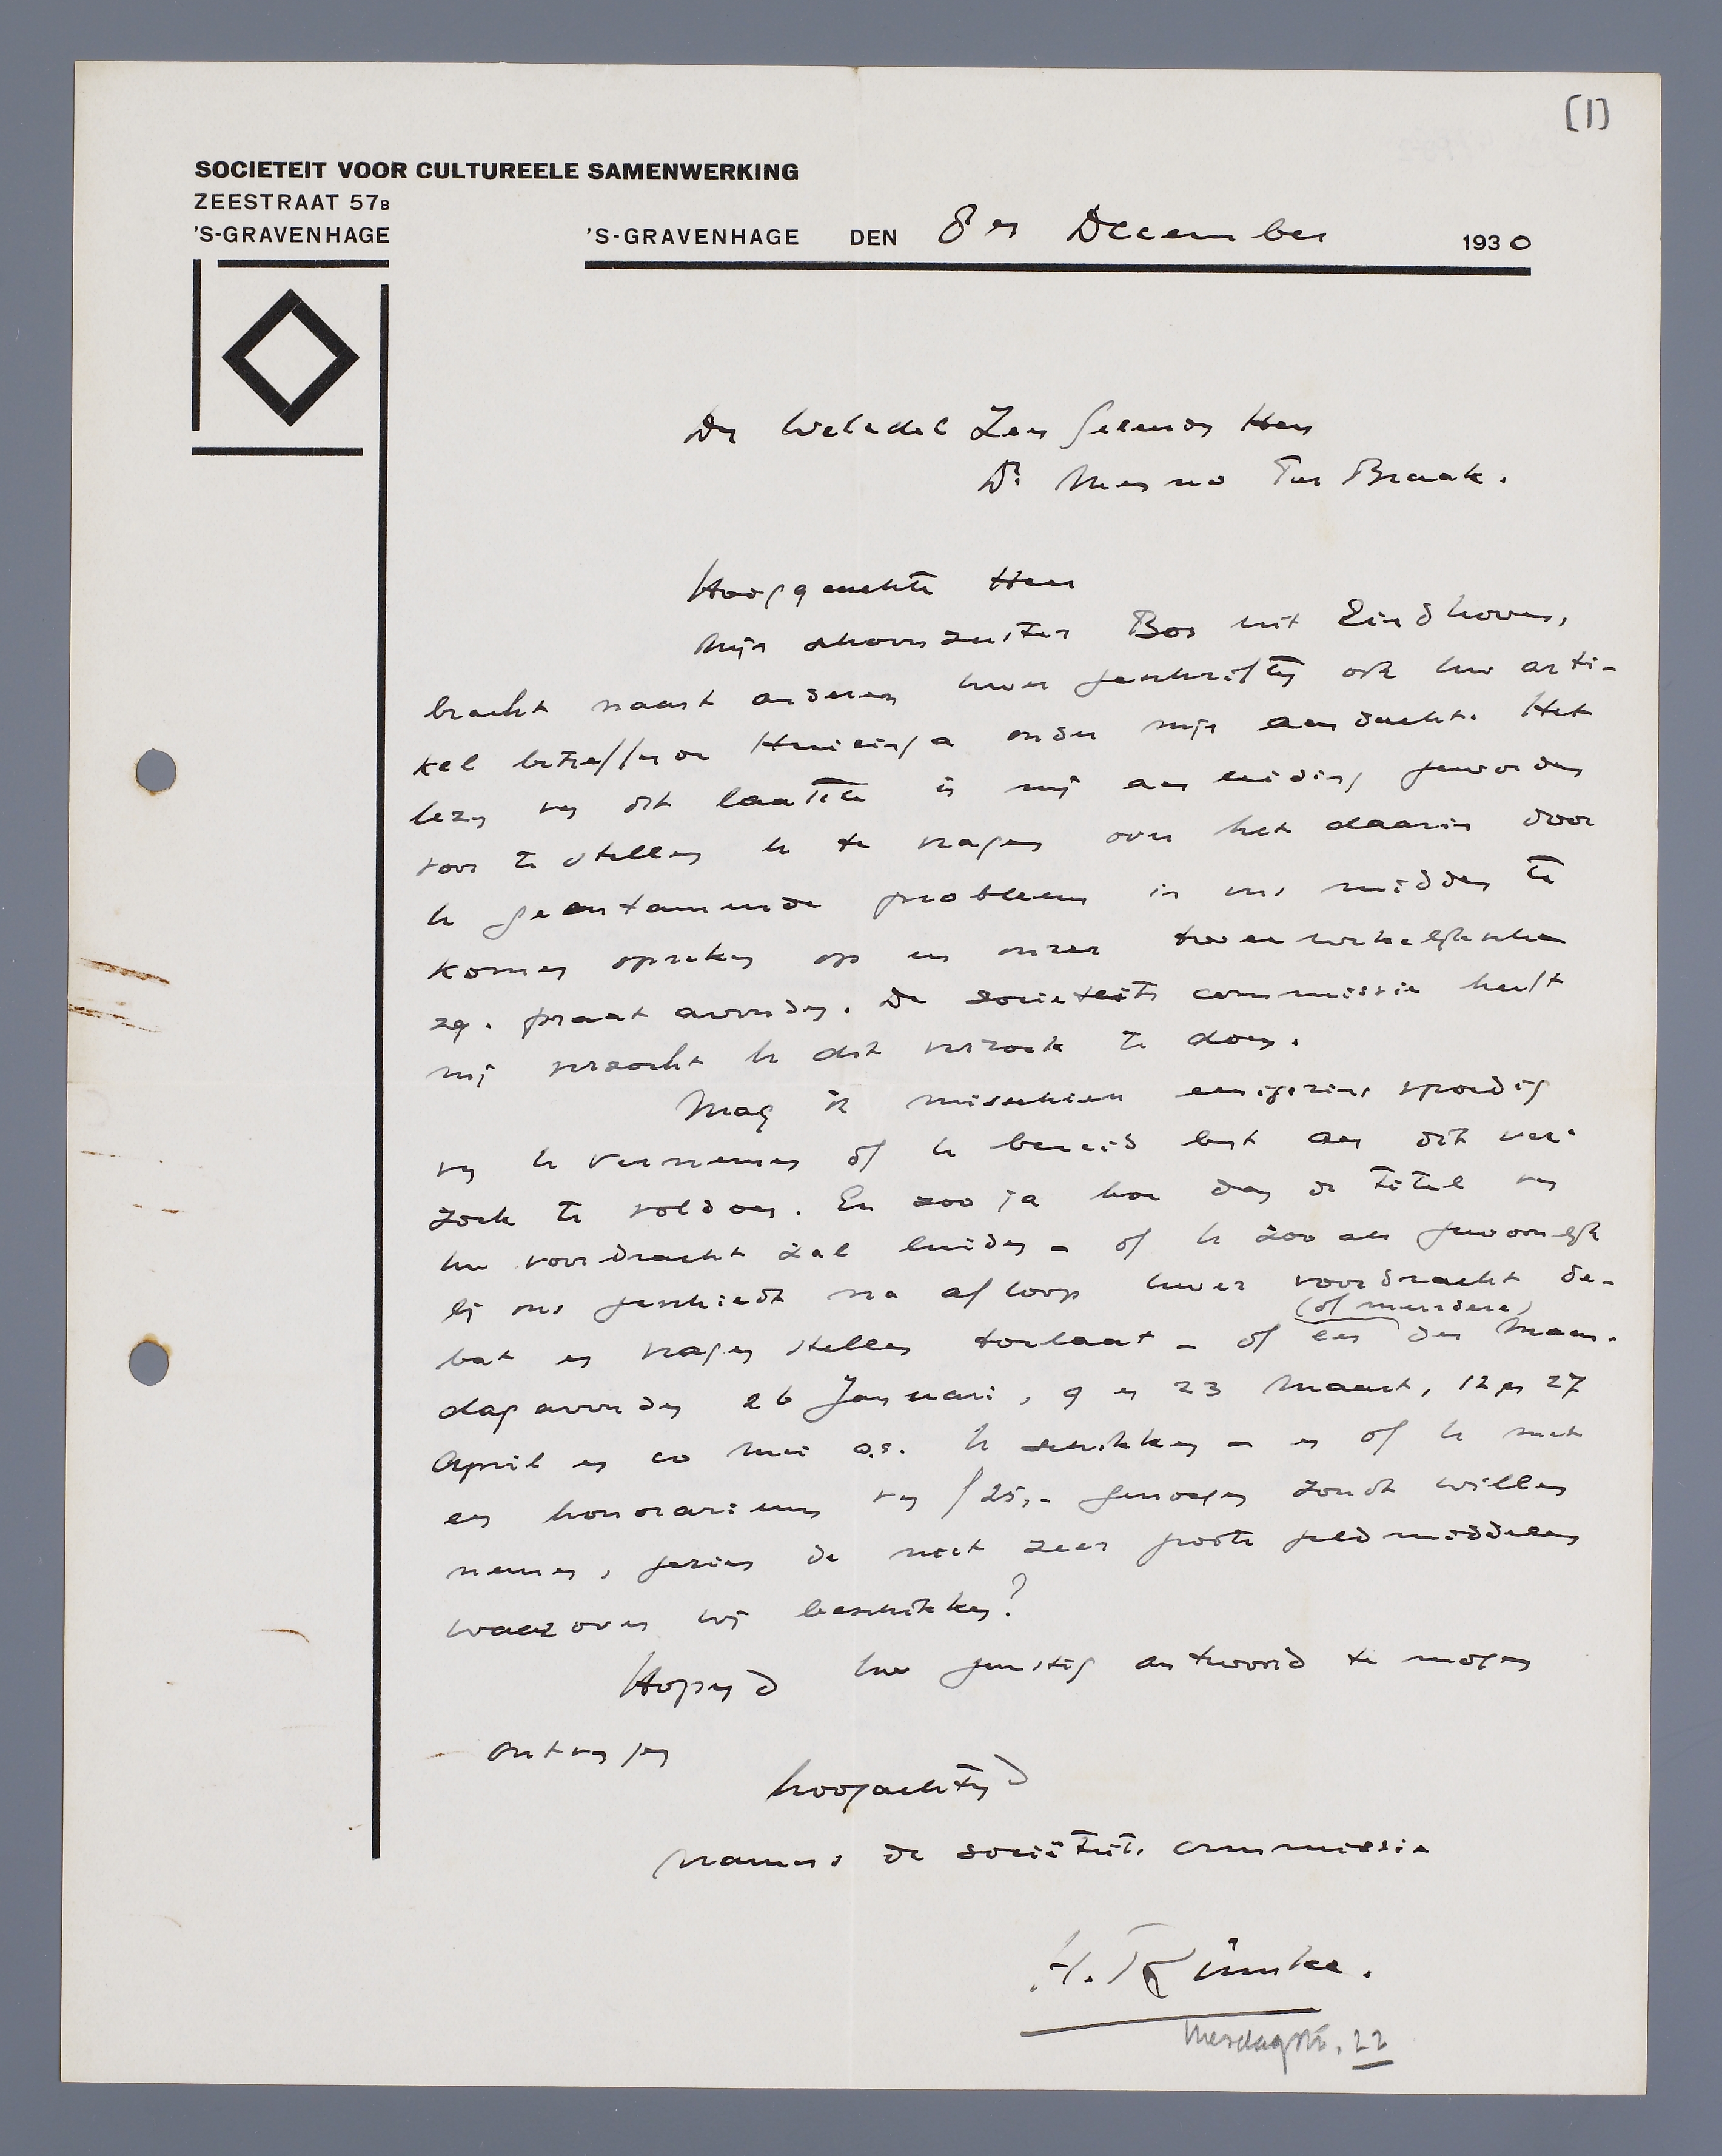 [1]
SOCIETEIT VOOR CULTUREELE SAMENWERKING
ZEESTRAAT 57B
'S-GRAVENHAGE
'S-GRAVENHAGE DEN 8en December 1930
Den Weledel Zeer Geleerden Heer
Dr Menno Ter Braak.
Hooggeachte Heer
Mijn schoonzuster Bos uit Eindhoven,
bracht naast anderen uwer geschriften ook uw arti-
kel betreffende Huizinga onder mijn aandacht. Het
lezen van dit laatste is mij aanleiding geworden
voor te stellen U te vragen over het daarin door
U geentameerde probleem in ons midden te
komen spreken op een onzer tweewekelijksche
zg. praatavonden. De societeits commissie heeft
mij verzocht U dit verzoek te doen.
Mag ik misschien eenigszins spoedig
van U vernemen of U bereid bent aan dit ver-
zoek te voldoen. En zoo ja hoe dan de titel van
uw voordracht zal luiden - of U zooals gewoonlijk
bij ons geschiedt na afloop uwer voordracht de-
bat en vragen stellen toelaat - of een (of meerdere) der Maan-
dagavonden 26 Januari, 9 en 23 Maart, 12 en 27
April en 10 Mei a.s. U schikken - en of U met
een honorarium van f 25,- genoegen zoudt willen
nemen, gezien de niet zeer groote geldmiddelen
waarover wij beschikken?
Hopend uw gunstig antwoord te mogen
ontvangen
hoogachtend
namens de sociëteits commissie
H. Rümke.
Mesdagstr. 22